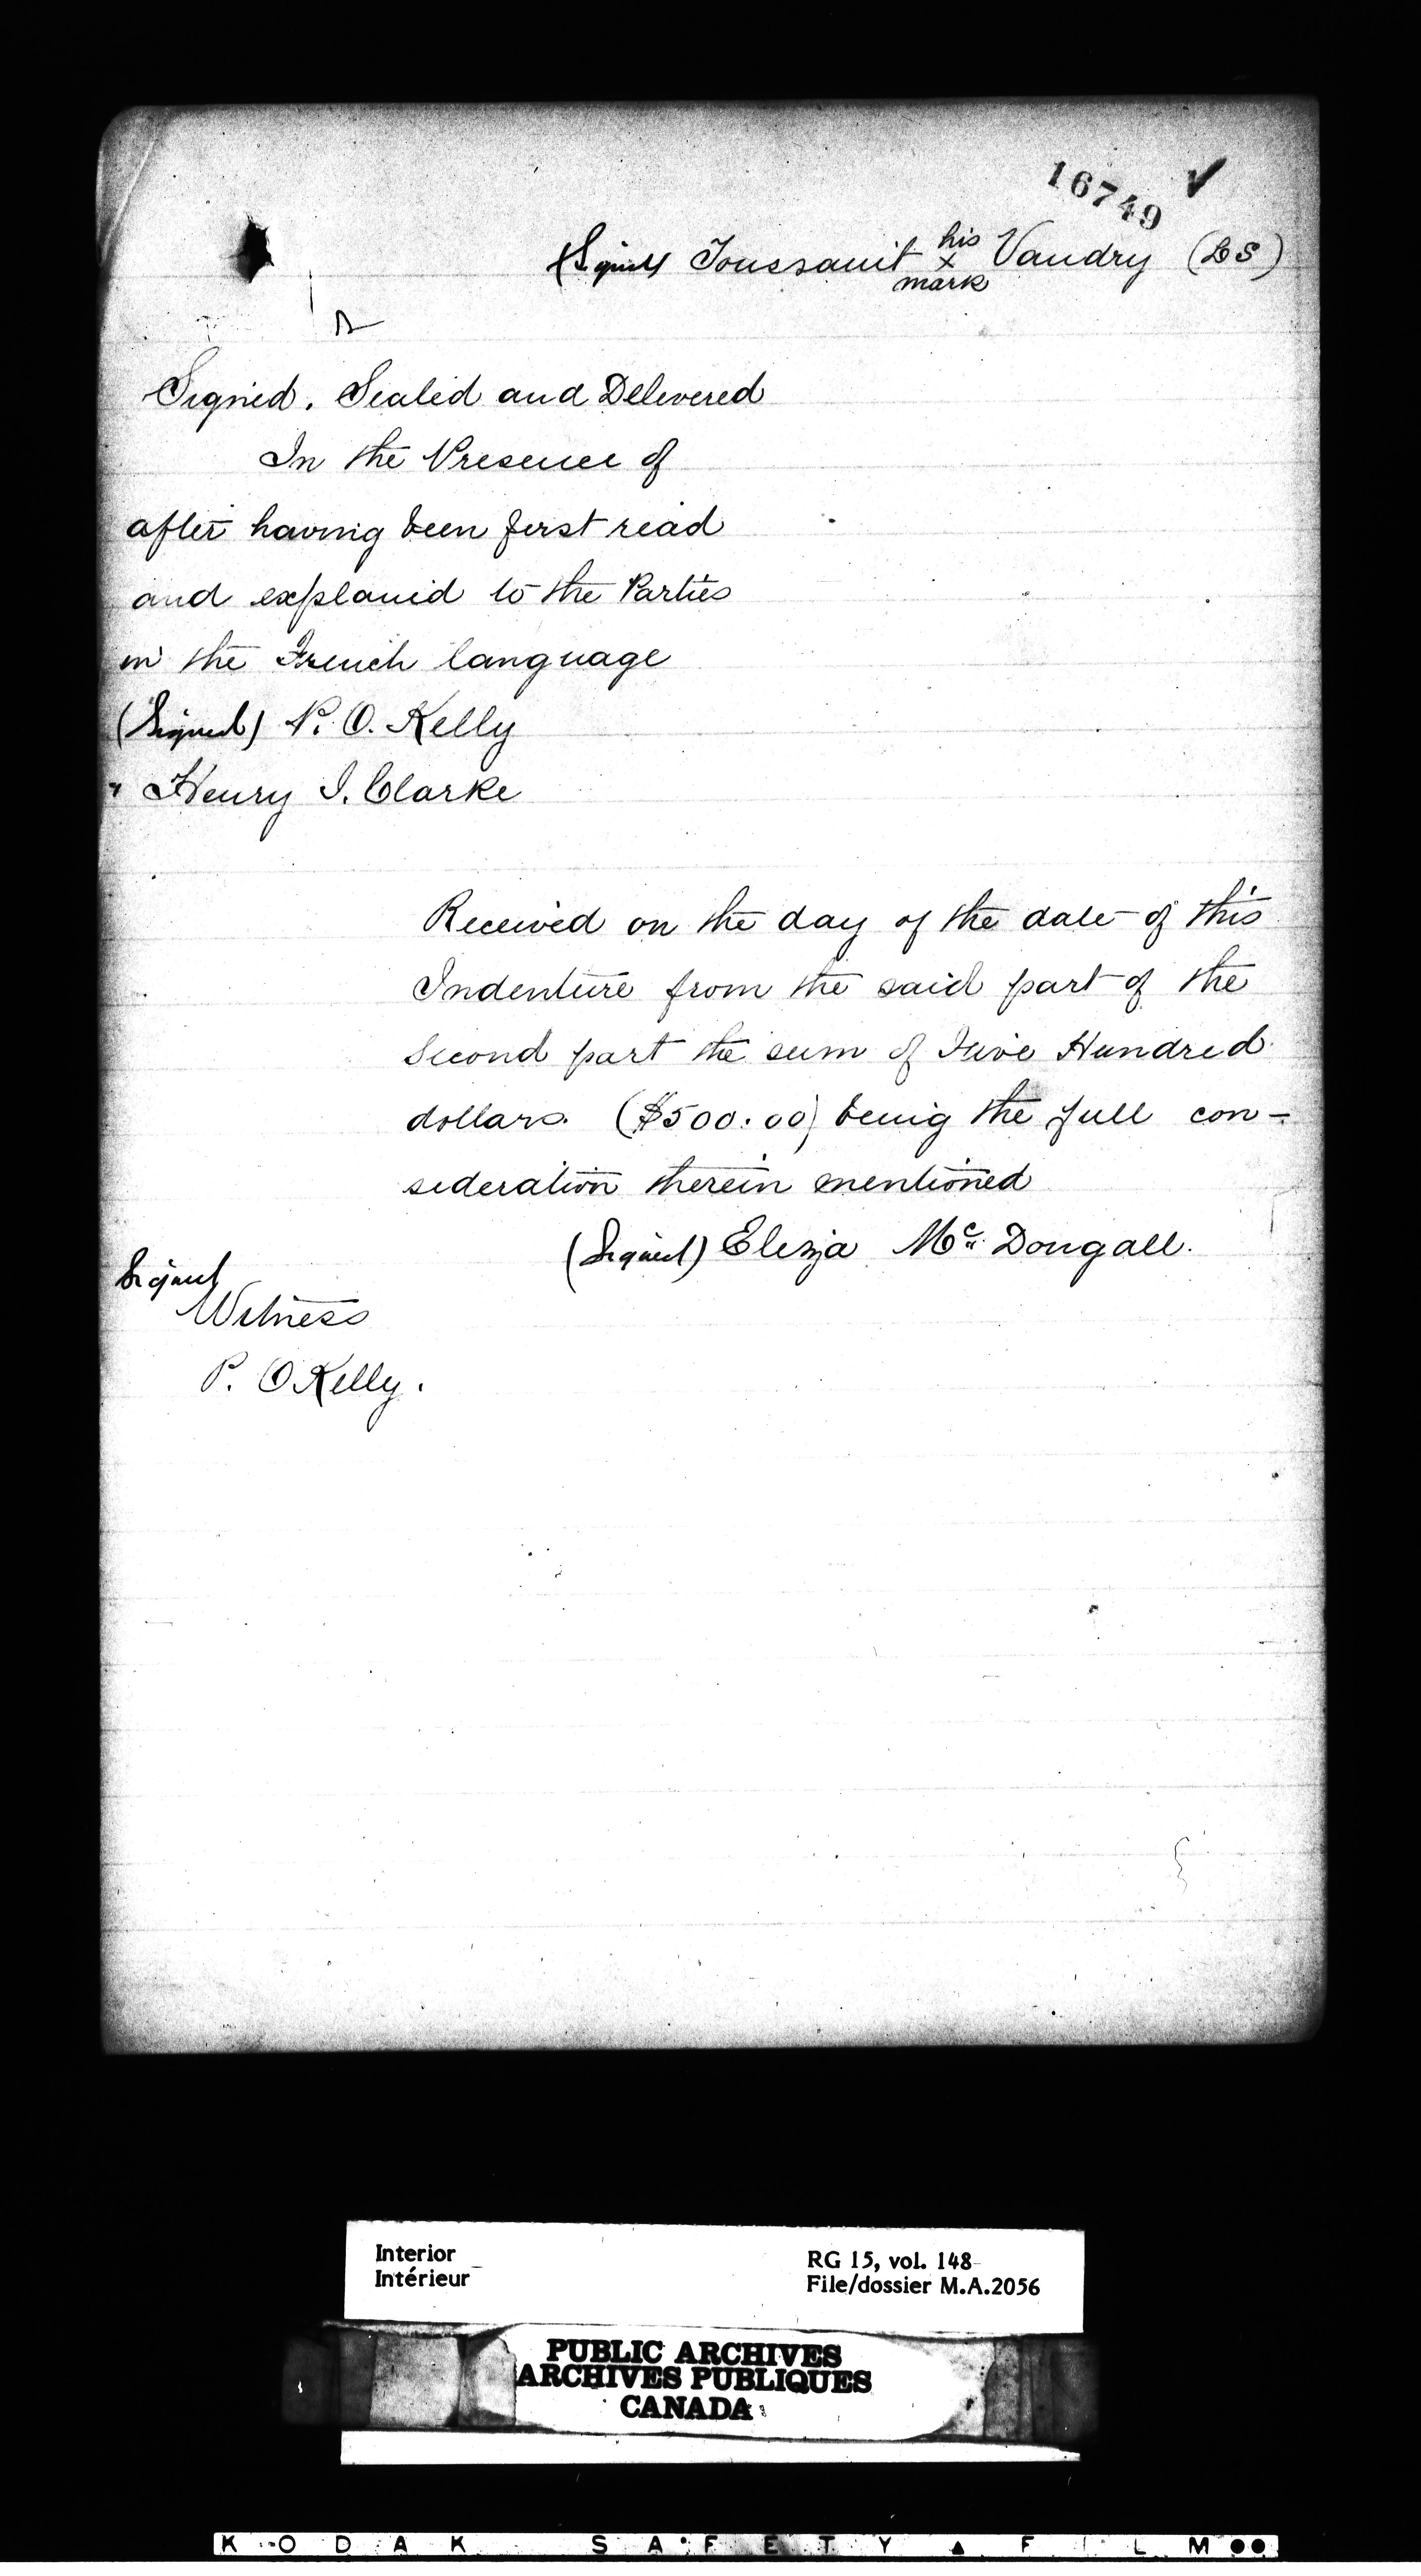 16749 ✓
(Signed) Toussaint his x mark Vaudry (LS)
Signed, Sealed and Delivered
In the Presence of
after having been first read
and explained to the Parties
in the French language
(Signed) P. O. Kelly
" Henry I. Clarke
Received on the day of the date of this
Indenture from the said part of the
Second part the sum of Five Hundred
dollars. ($500.00) being the full con-
sideration therein mentioned
(Signed) Eliza Mc Dougall.
Signed
Witness
P. O Kelly.
Interior
Intérieur
RG 15, vol. 148
File/dossier M.A.2056
PUBLIC ARCHIVES
ARCHIVES PUBLIQUES
CANADA
KODAK SAFETY ▲ FILM ●●